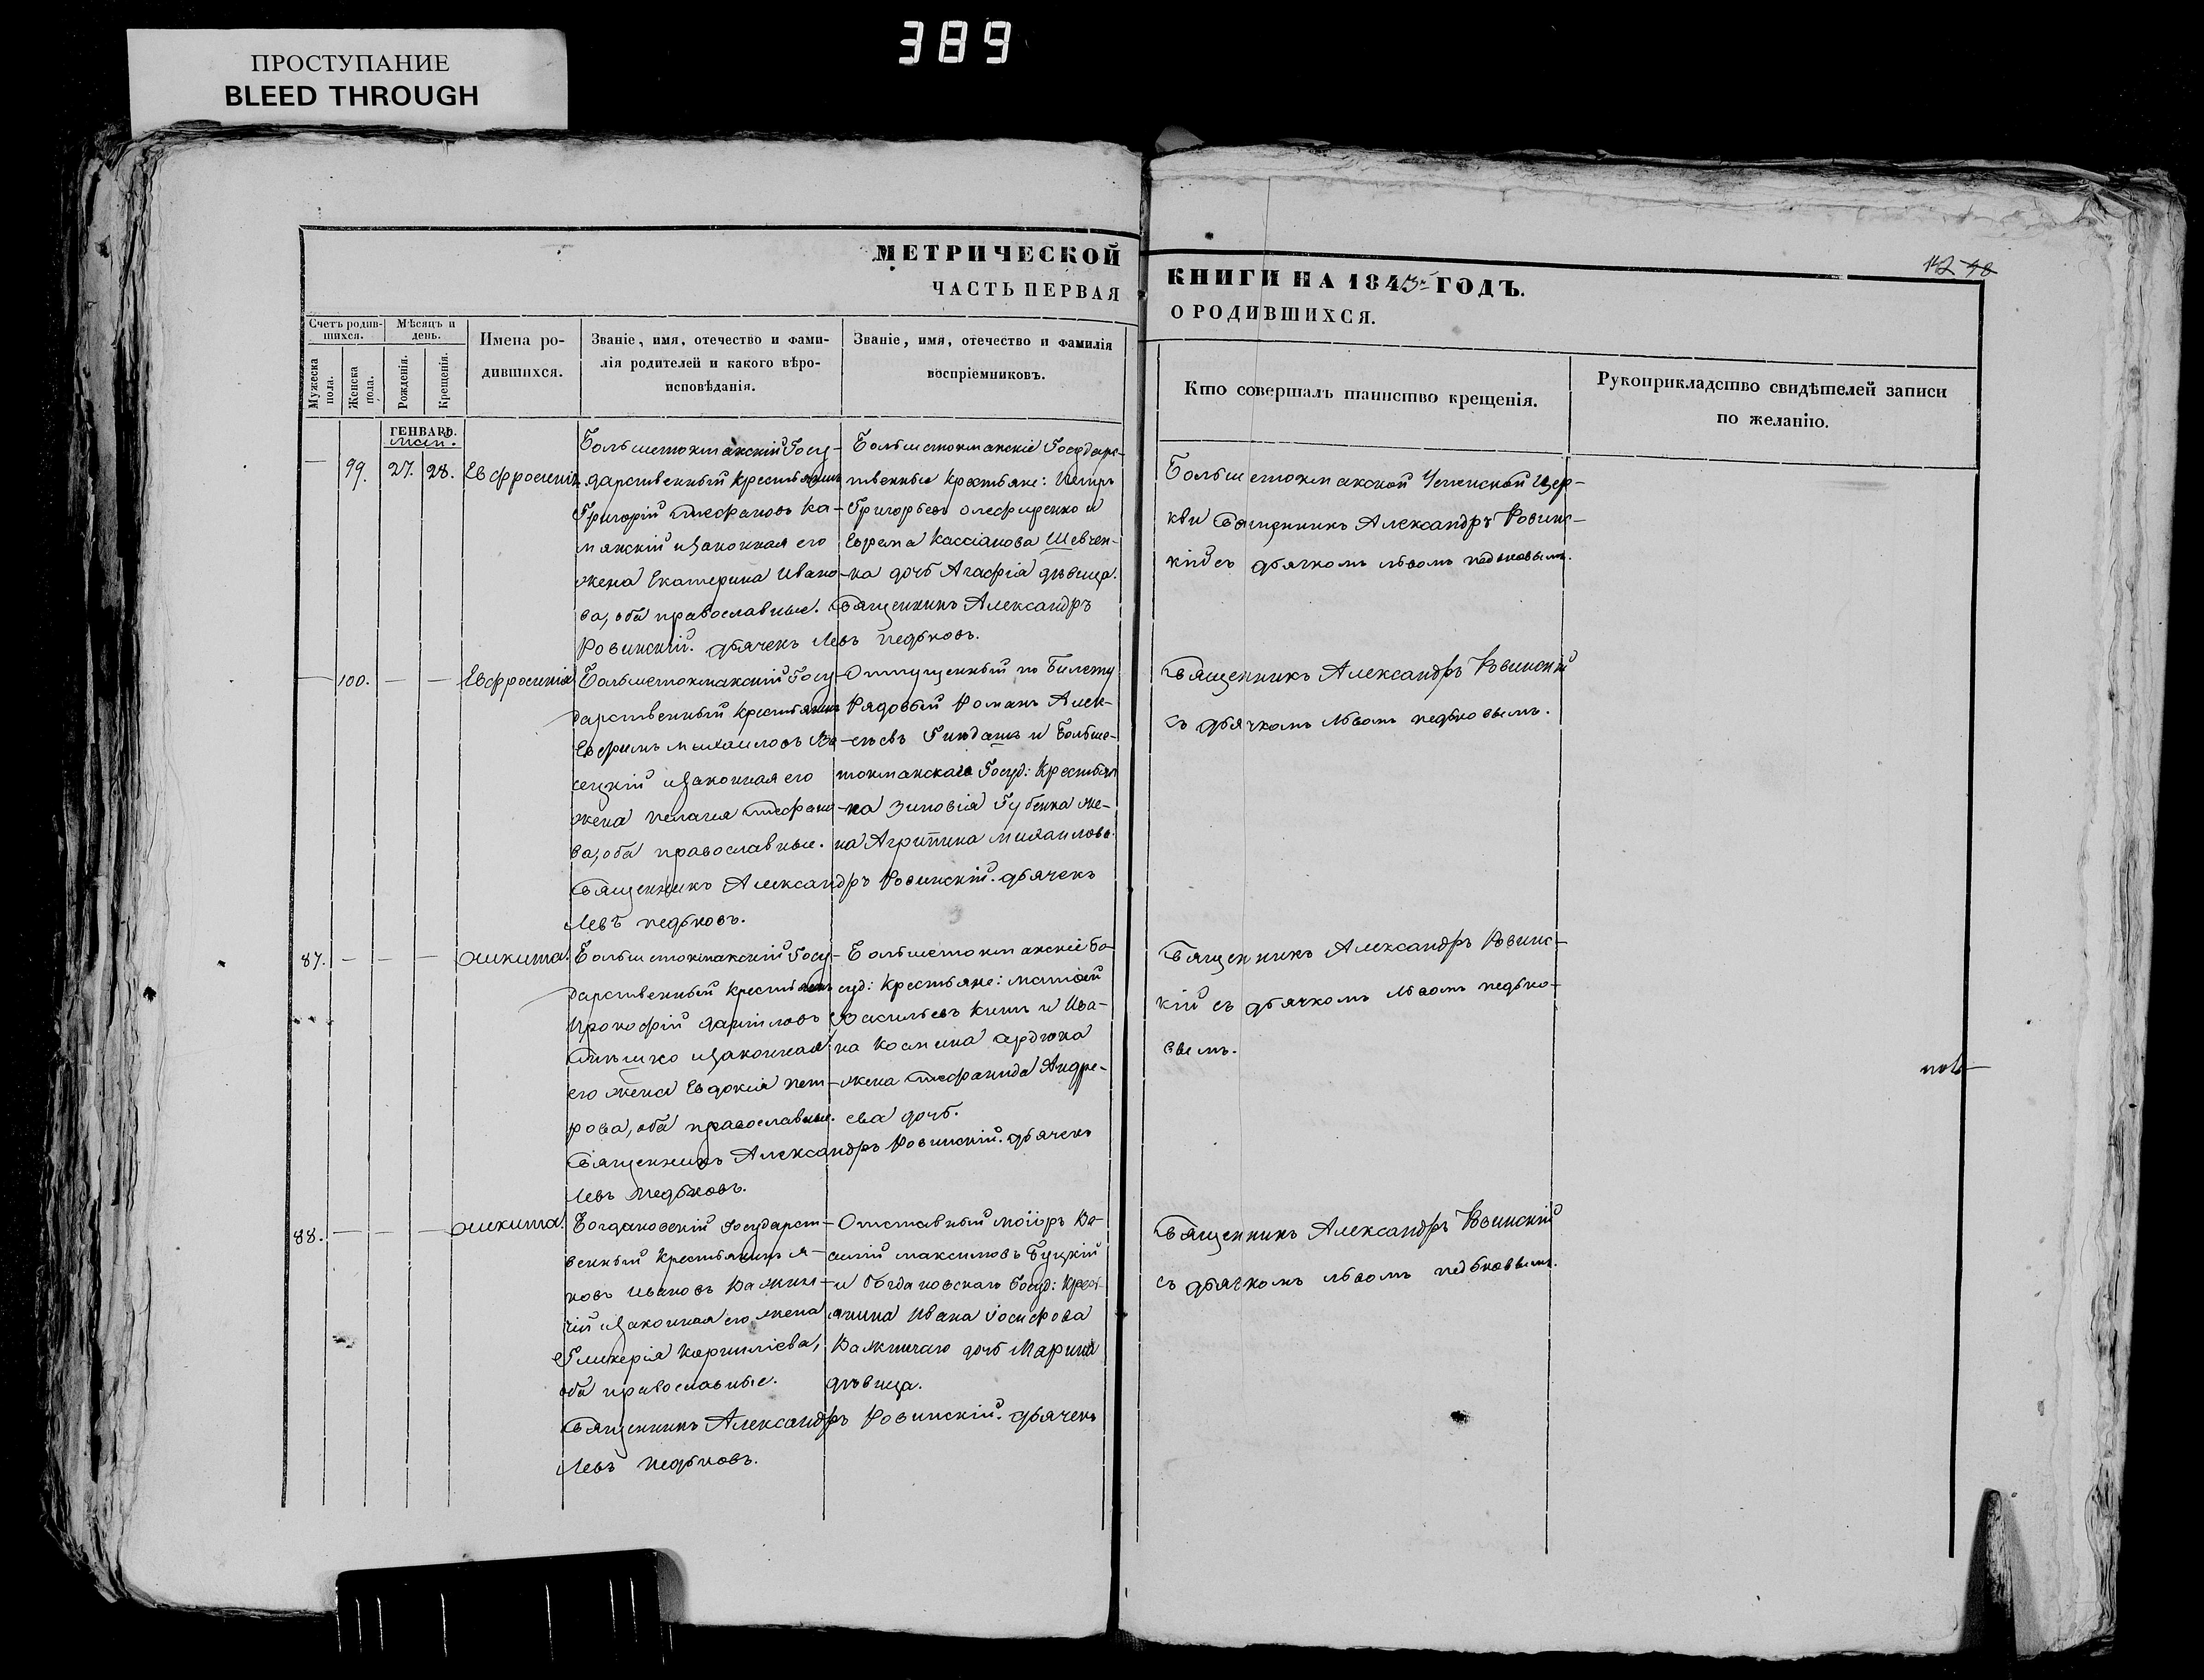 389
ПРОСТУПАНИЕ
BLEED THROUGH
МЕТРИЧЕСКОЙ
ЧАСТЬ ПЕРВАЯ
КНИГИ НА 1843й ГОДЪ.
О РОДИВШИХСЯ.
142 
Счетъ родив-
шихся.
Мѣсяцъ и
день.
Мужеска
пола.
Женска
пола.
Рожденія.
Крещенія.
Имена ро-
дившихся.
Званіе, имя, отечество и фами-
лія родителей и какого вѣро-
исповѣданія.
Званіе, имя, отечество и фамилія
воспріемниковъ.
Кто совершалъ таинство крещенія.
Рукоприкладство свидѣтелей записи
по желанію.
ГЕНВАРЬ.
99. 27. 28. Евфросинія
Большетокмакскій Госу-
дарственный Крестьянинъ
Григорій Стефановъ Ка-
мянскій и Законная его
жена Екатерина Ивано-
ва, оба православные. Священникъ Александръ
Ровинскій. Дьячекъ Левъ Педьковъ.
Большетокмакскіе Государс-
твенные Крестьяне: Петръ
Григорьевъ Олефиренко и
Ефрема Кассіанова Шевчен-
ка дочь Агафія дѣвица.
Большетокмакской Успенской Цер-
кви Священникъ Александръ Ровинс-
кій съ дьячкомъ Львомъ Педьковымъ.
100. — — Евфросинія
Большетокмакскій Госу-
дарственный Крестьянинъ
Ефимъ Михайловъ
сецкій и Законная его
жена Пелагія Стефано-
ва, оба православные.
Священникъ Александръ Ровинскій. Дьячекъ
Левъ Педьковъ.
Отпущенный по Билету
Рядовый Романъ Алек-
сѣевъ и Больше-
токмакскаго Госуд: Крестьяни-
на Зиновія Губенка же-
на Агрипина Михайлова.
Священникъ Александръ Ровинскій
съ дьячкомъ Львомъ Педьковымъ.
87. — — — Никита.
Большетокмакскій Госу-
дарственный Крестьянинъ
Прокофій Даніиловъ
и Законная
его жена Евдокія Пет-
рова, оба православные.
Священникъ Александръ Ровинскій. Дьячекъ
Левъ Педьковъ.
Большетокмакскіе Го-
суд: Крестьяне: Матѳей
Васильевъ Кишъ и Ива-
на Космина Сердюка
жена Стефанида Андре-
ева дочь.
Священникъ Александръ Ровинс-
кій съ дьячкомъ Львомъ Педько-
вымъ.
88. — — — Никита.
Богдановскій Государст-
венный Крестьянинъ Я-
ковъ Ивановъ Важни-
чій и Законная его жена
Гликерія Корниліева,
оба православные.
Священникъ Александръ Ровинскій. Дьячекъ
Левъ Педьковъ.
Отставный Маіоръ Ва-
силій Максимовъ Буцкій
и Богдановскаго Госуд: Крест-
янина Ивана Іосифова
Важничаго дочь Марина
дѣвица.
Священникъ Александръ Ровинскій
съ дьячкомъ Львомъ Педьковымъ.